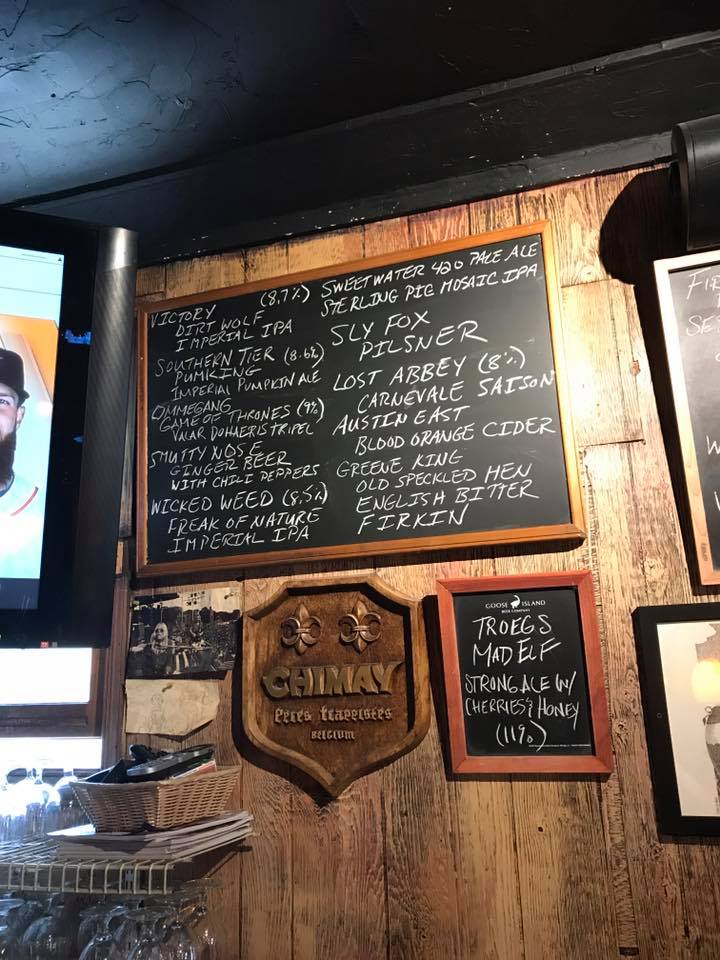 VICTORY (8.7%)
DIRT WOLF
IMPERIAL IPA
SOUTHERN TIER (8.6%)
PUMKING
IMPERIAL PUMPKIN ALE
OMMEGANG
GAME OF THRONES (9%)
VALAR DOHAERIS TRIPEL
SMUTTY NOSE
GINGER BEER
WITH CHILI PEPPERS
WICKED WEED (8.5%)
FREAK OF NATURE
IMPERIAL IPA
SWEETWATER 420 PALE ALE
STERLING PIG MOSAIC IPA
SLY FOX
PILSNER
LOST ABBEY (8%)
CARNEVALE SAISON
AUSTIN EAST
BLOOD ORANGE CIDER
GREENE KING
OLD SPECKLED HEN
ENGLISH BITTER
FIRKIN
CHIMAY
Peres Trappistes
BELGIUM
GOOSE ISLAND
BEER COMPANY
TROEGS
MAD ELF
STRONG ALE W/
CHERRIES & HONEY
(11%)
FIR
SE